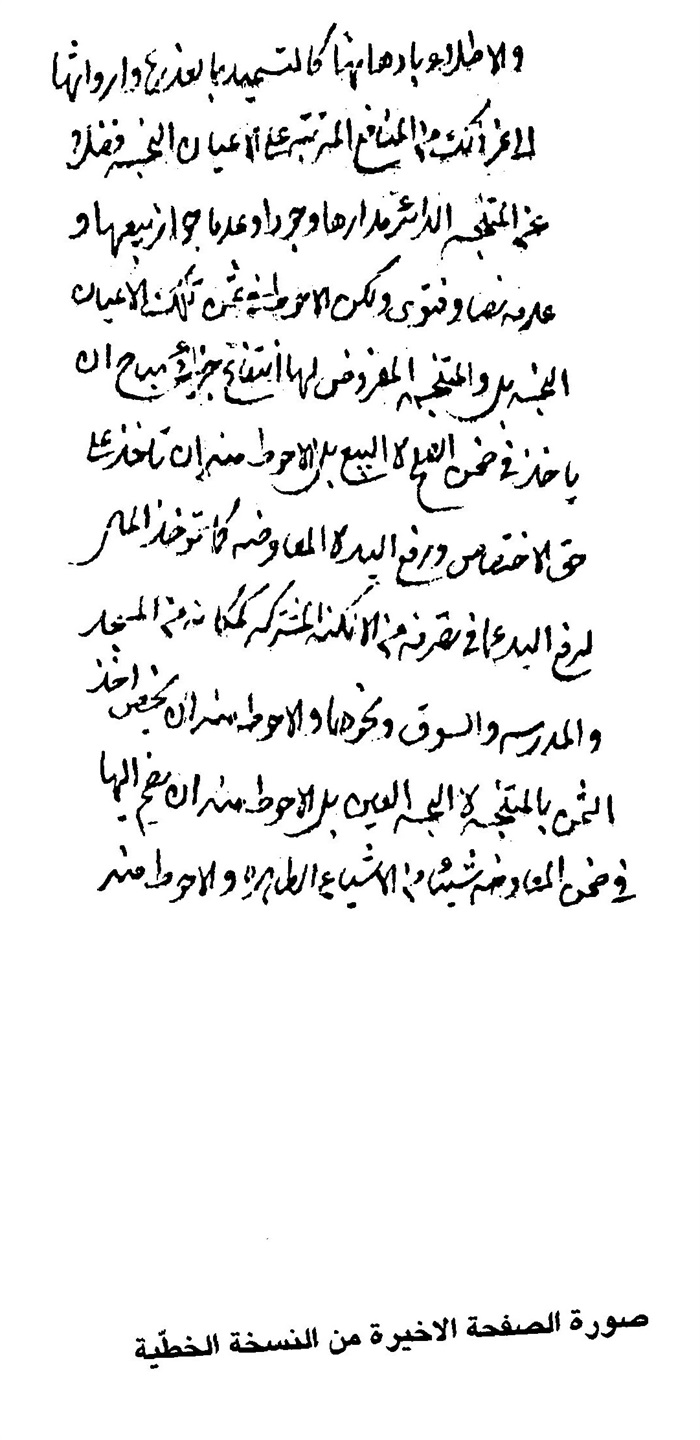 والاطلاء بادهانها كالتسميد بالعذرة وارواثها
الى غير ذلك من المنافع المترتبة على الاعيان النجسه فضلا
عن المتنجسه الدائر مدارها وجودا وعدما جواز بيعها و
عدمه نصا وفتوى ولكن الاحوط في ثمن تلك الاعيان
النجسه بل والمتنجسه المفروض لها انتفاع جزئي مباح ان
ياخذ في ضمن الصلح لا البيع بل الاحوط منه ان تاخذ على
حق الاختصاص ورفع اليد لا المعاوضه كما تؤخذ المال
لرفع اليد عما في تصرفه من الامكنه المشتركه كمكانه من المسجد
والمدرسه والسوق ونحوها والاحوط منه ان يخص اخذ
الثمن بالمتنجسه لا النجسه العين بل الاحوط منه ان يضم اليها
في ضمن المعاوضه شيئا من الاشياء الطاهره والاحوط منه
صورة الصفحة الاخيرة من النسخة الخطّية